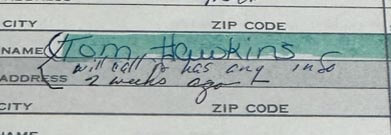 CITY ZIP CODE
NAME Tom Hawkins
will call if has any info
ADDRESS 2 weeks ago
CITY ZIP CODE
NAME